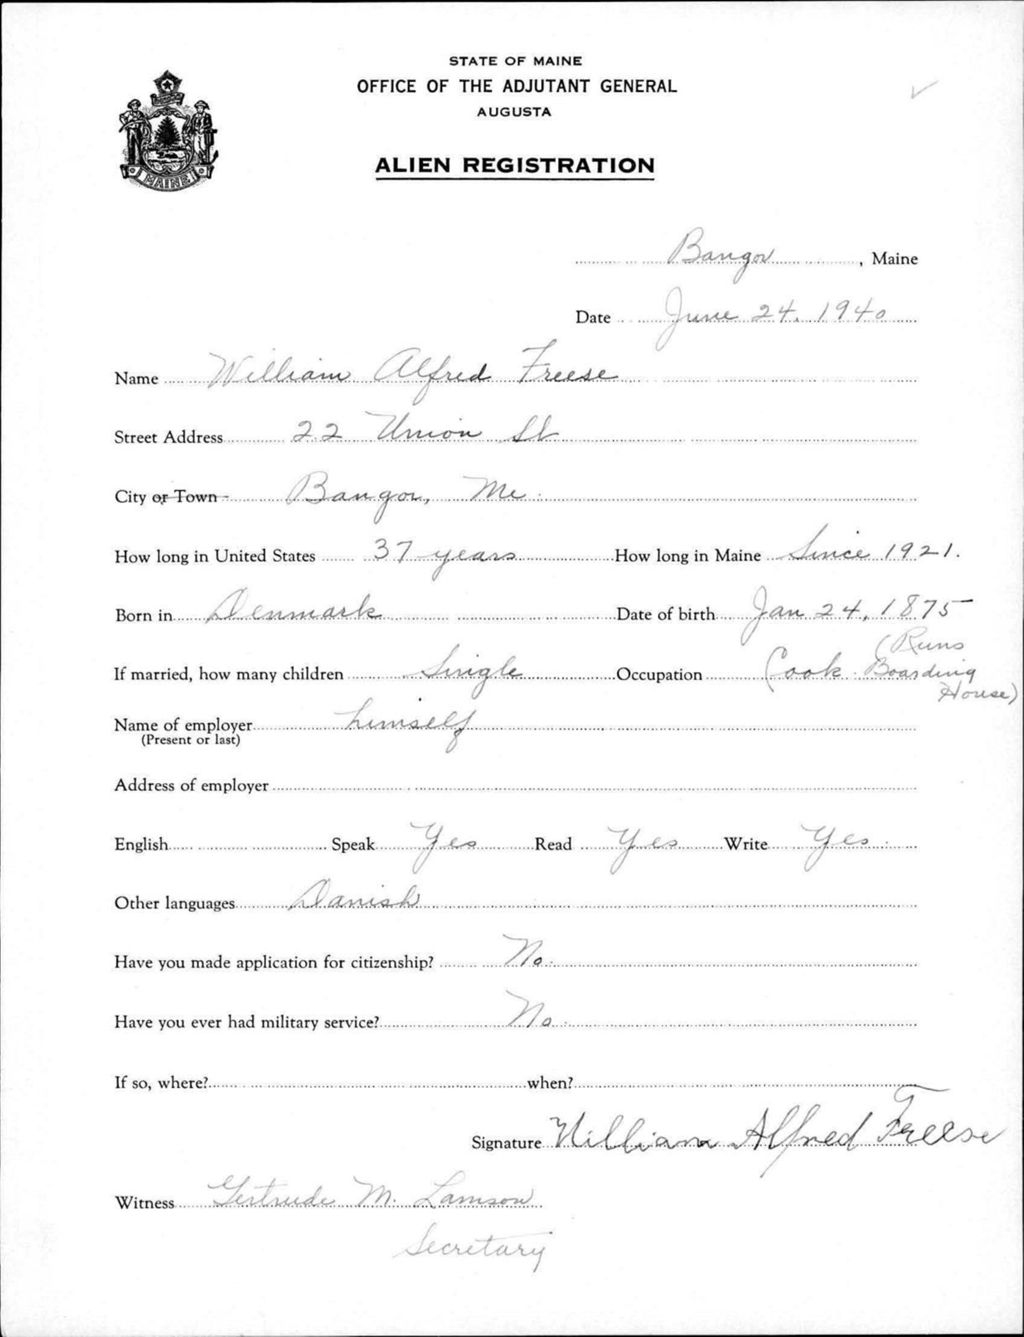 STATE OF MAINE
OFFICE OF THE ADJUTANT GENERAL
AUGUSTA
ALIEN REGISTRATION
MAINE
Bangor, Maine
Date June 24, 1940
Name William Alfred Freese
Street Address 22 Union St
City or Town Bangor, Me.
How long in United States 37 years How long in Maine Since 1921.
Born in Denmark Date of birth Jan 24, 1875
If married, how many children Single Occupation Cook (Runs Boarding House)
Name of employer himself
(Present or last)
Address of employer
English Speak Yes Read Yes Write Yes.
Other languages Danish
Have you made application for citizenship? No.
Have you ever had military service? No.
If so, where? when?
Signature William Alfred Freese
Witness Gertrude M. Lamson
Secretary